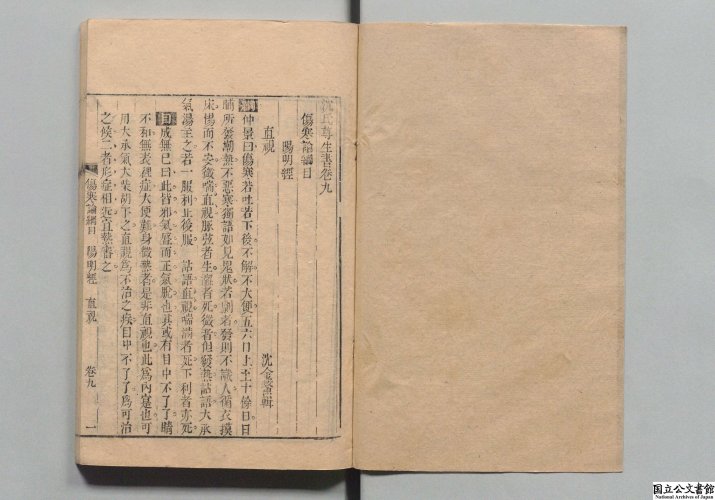 沈氏尊生書卷九
傷寒論綱目 沈金鰲輯
陽明經
直視
綱仲景曰傷寒若吐若下後不解不大便五六日上至十餘日日
晡所發潮熱不惡寒獨語如見鬼狀若劇者發則不識人循衣摸
床惕而不安微喘直視脈弦者生濇者死微者但發熱詀語大承
氣湯主之若一服利止後服 詀語直視喘滿者死下利者亦死
目成無己曰此皆邪氣盛而正氣脫也其或有目中不了了睛
不和無表裡症大便難身微熱者是非直視也此為內實也可
用大承氣大柴胡下之直視為不治之疾目中不了了為可治
之候二者形症相近宜熟審之
傷寒論綱目 陽明經 直視 卷九 一
国立公文書館
National Archives of Japan